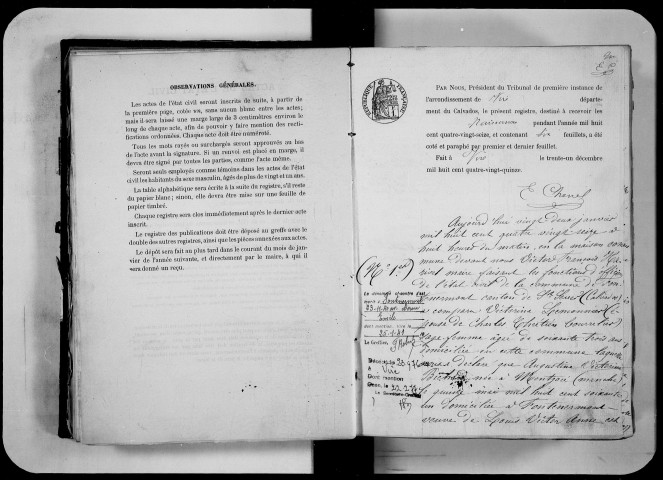 OBSERVATIONS GÉNÉRALES.
Les actes de l'état civil seront inscrits de suite, à partir de
la première page, cotée vs, sans aucun blanc entre les actes;
mais il sera laissé une marge large de 3 centimètres environ le
long de chaque acte, afin de pouvoir y faire mention des recti-
fications ordonnées. Chaque acte doit être numéroté.
Tous les mots rayés ou surchargés seront approuvés au bas
de l'acte avant la signature. Si un renvoi est placé en marge, il
devra être signé par toutes les parties, comme l'acte même.
Seront seuls employés comme témoins dans les actes de l'état
civil les habitants du sexe masculin, âgés de plus de vingt et un ans.
La table alphabétique sera écrite à la suite du registre, s'il reste
du papier blanc; sinon, elle devra être mise sur une feuille de
papier timbré.
Chaque registre sera clos immédiatement après le dernier acte
inscrit.
Le registre des publications doit être déposé au greffe avec le
double des autres registres, ainsi que les pièces annexées aux actes.
Le dépôt sera fait au plus tard dans le courant du mois de jan-
vier de l'année suivante, et directement par le maire, à qui il
sera donné un reçu.
PAR NOUS, Président du Tribunal de première instance de
l'arrondissement de Vire départe-
ment du Calvados, le présent registre, destiné à recevoir les
Naissances pendant l'année mil huit
cent quatre-vingt-seize, et contenant six feuillets, a été
coté et paraphé par premier et dernier feuillet.
Fait à Vire le trente-un décembre
mil huit cent quatre-vingt-quinze.
E. Chenel
(N° 1er)
Aujourd'hui vingt deux janvier
mil huit cent quatre vingt seize à
huit heures du matin, en la maison com-
mune devant nous Victor François
maire faisant les fonctions d'officier
de l'état civil de la commune de Fon-
tenermont canton de St Sever (Calvados)
a comparu Victorine Lemonnier
épouse de Charles Chrétien
sage femme âgée de soixante trois ans
domiciliée en cette commune laquelle
nous a déclaré que Augustine Victorine
née à Montjoie (manche)
le quinze mai mil huit cent soixante
un domiciliée à Fontenermont
veuve de Louis Victor Anne
Le Greffier,
Décédé
à Vire
Dont mention